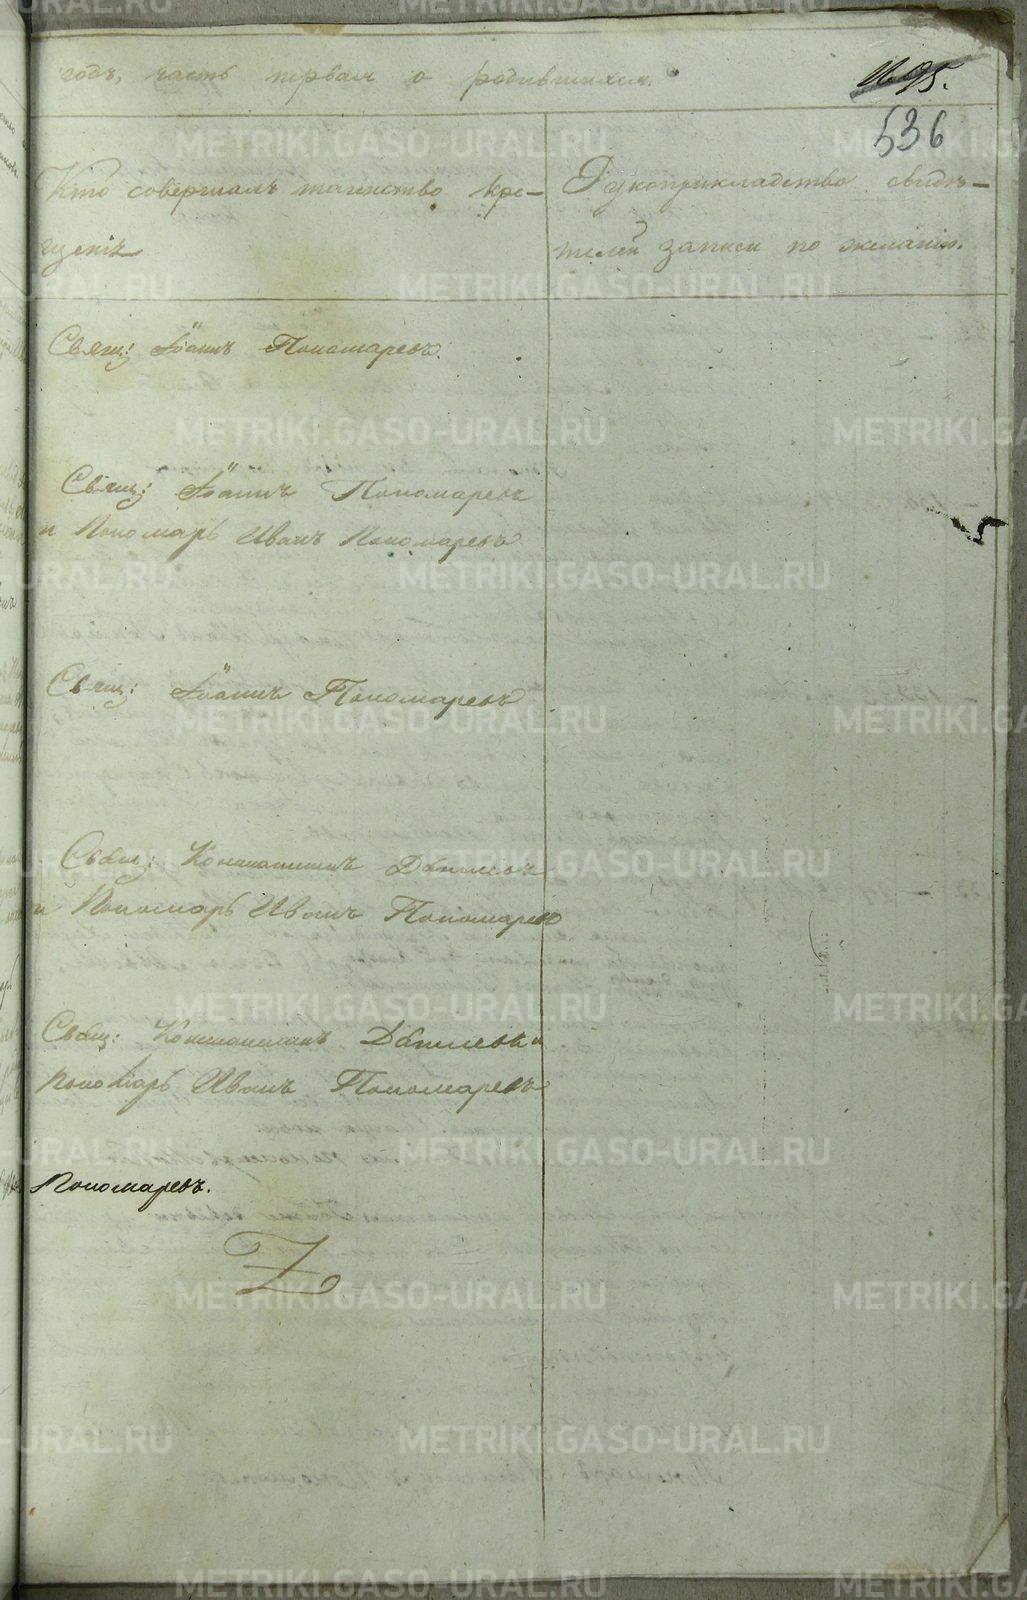 годъ, часть первая о родившихся.
95.
536
Кто совершалъ таинство кре-
щенія
Рукоприкладство свидѣ-
телей записи по желанію.
Свящ: Іоаннъ Пономаревъ.
Свящ: Іоаннъ Пономаревъ
и Пономарь Иванъ Пономаревъ
Свящ: Іоаннъ Пономаревъ
Свящ: Константинъ
и Пономарь Иванъ Пономаревъ
Свящ: Константинъ и
Пономарь Иванъ Пономаревъ
Пономаревъ.
METRIKI.GASO-URAL.RU